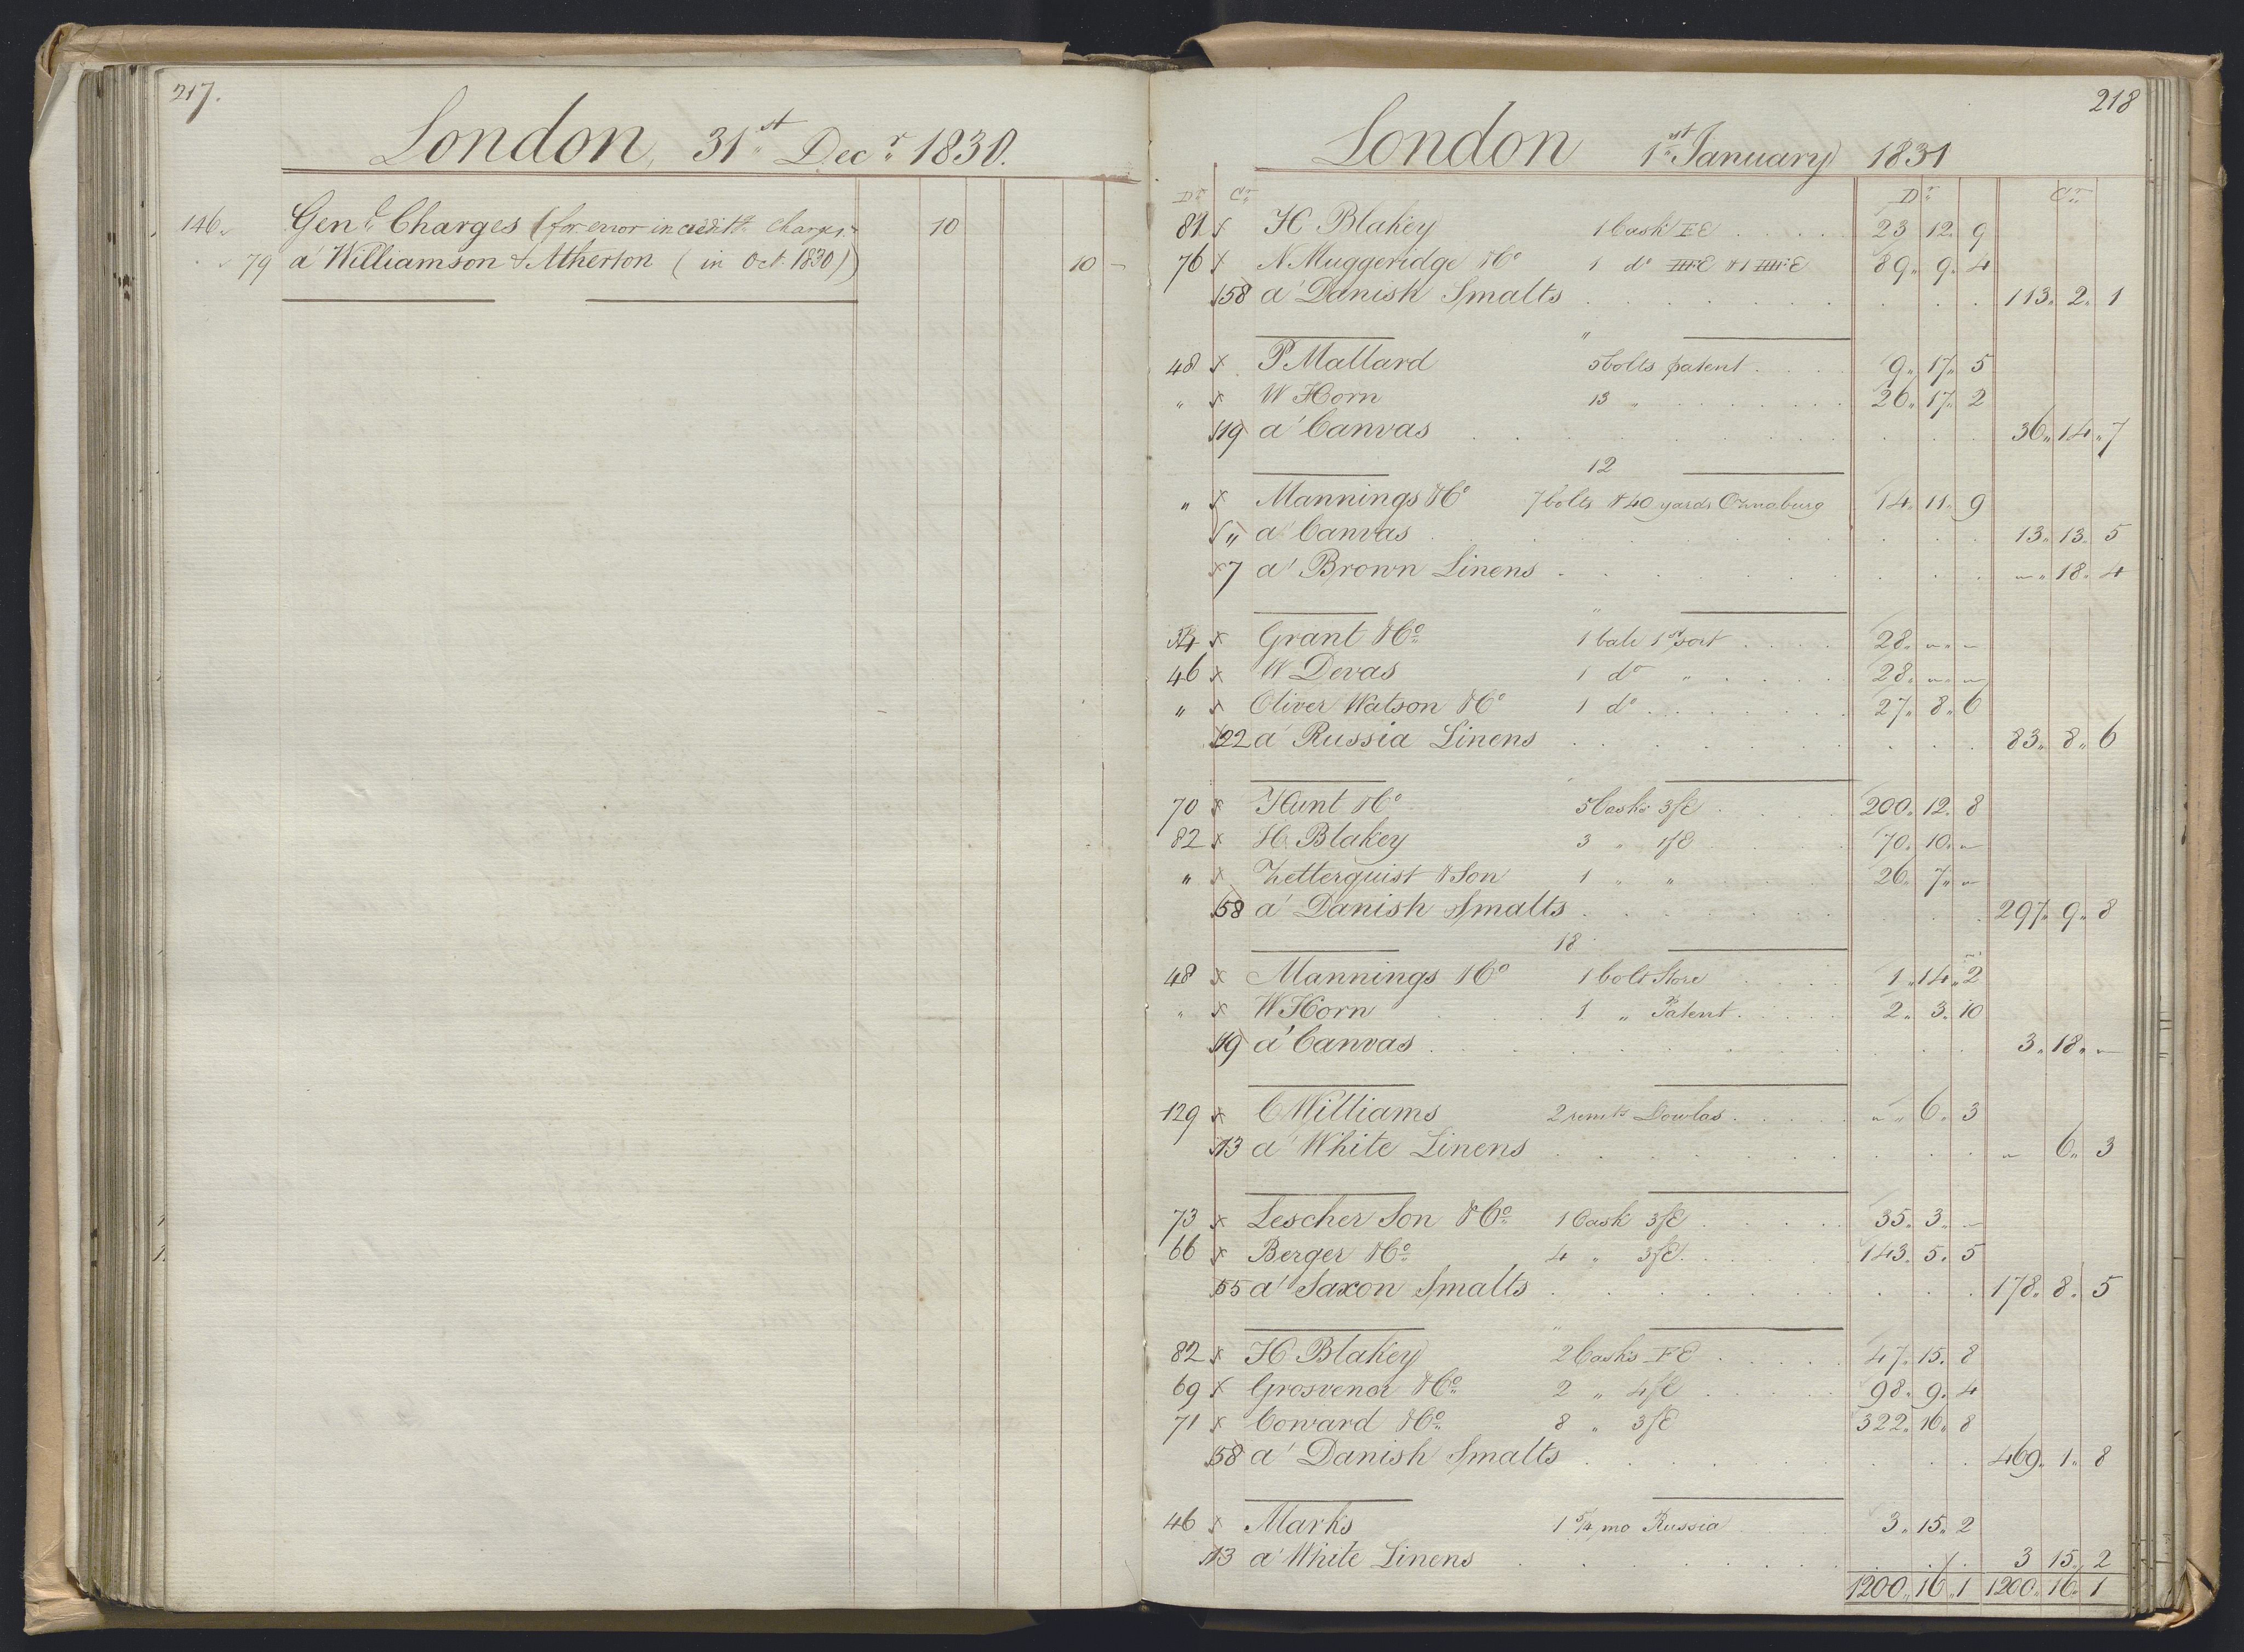 217.
London, 31st Decr 1830.
146. Genl Charges (for error in credits Charges 10
79 a' Williamson & Atherton (in Oct. 1830)) 10 -
218
London 1st January 1831
Dr Cr Dr Cr
81 H Blakey 1 Cask FE 23 12. 9
76 N Muggeridge & Co 1 do IIIE & 1 IIIIE 89. 9. 4
158 a' Danish Smalts 113. 2. 1
"
48 P Mallard 5 bolts patent 9. 17. 5
" W Horn 13 " 26. 17. 2
119 a' Canvas 36. 14. 7
12
" Mannings & Co 7 bolts & 40 yards Oznaburg 14. 11. 9
" a' Canvas 13. 13. 5
7 a' Brown Linens -. 18. 4
"
34 Grant & Co 1 bale 1st sort 28. -. -
46 W Devas 1 do " 28. -. -
" Oliver Watson & Co 1 do 27. 8. 6
122 a' Russia Linens 83. 8. 6
70 Hunt & Co 5 Casks 3/E 200. 12. 8
82 H Blakey 3 " 1/E 70. 10. -
" Zetterquist & Son 1 " " 26. 7. -
158 a' Danish Smalts 297. 9. 8
18
48 Mannings & Co 1 bolt Store 1. 14. 2
" W Horn 1 " Patent 2. 3. 10
119 a' Canvas 3. 18. -
129 C Williams 2 remts Dowlas -. 6. 3
113 a' White Linens - 6. 3
73 Lescher Son & Co 1 Cask 3/E 35. 3. -
66 Berger & Co 4 " 3/E 143. 5. 5
155 a' Saxon Smalts 178. 8. 5
"
82 H Blakey 2 Casks FE 47. 15. 8
69 Grosvenor & Co 2 " 4/E 98. 9. 4
71 Coward & Co 8 " 3/E 322. 16. 8
158 a' Danish Smalts 469. 1. 8
46 Marks 1 5/4 mo Russia 3. 15. 2
113 a' White Linens 3 15. 2
1200. 16. 1 1200. 16. 1